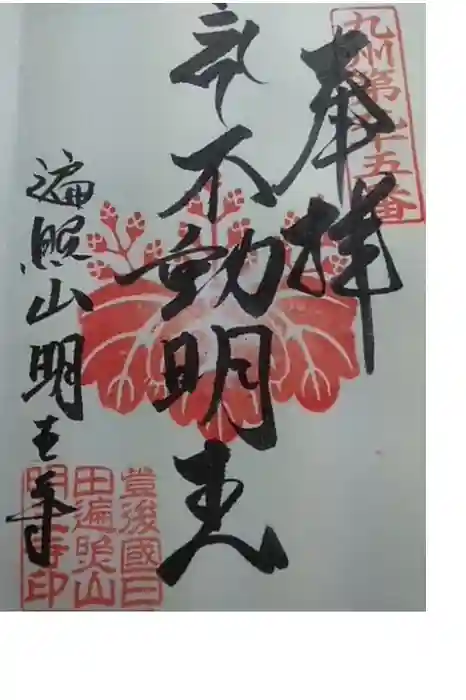 九州第三十五番
奉拝
不動明王
遍照山明王寺
豊後國日
田遍照山
明王寺印